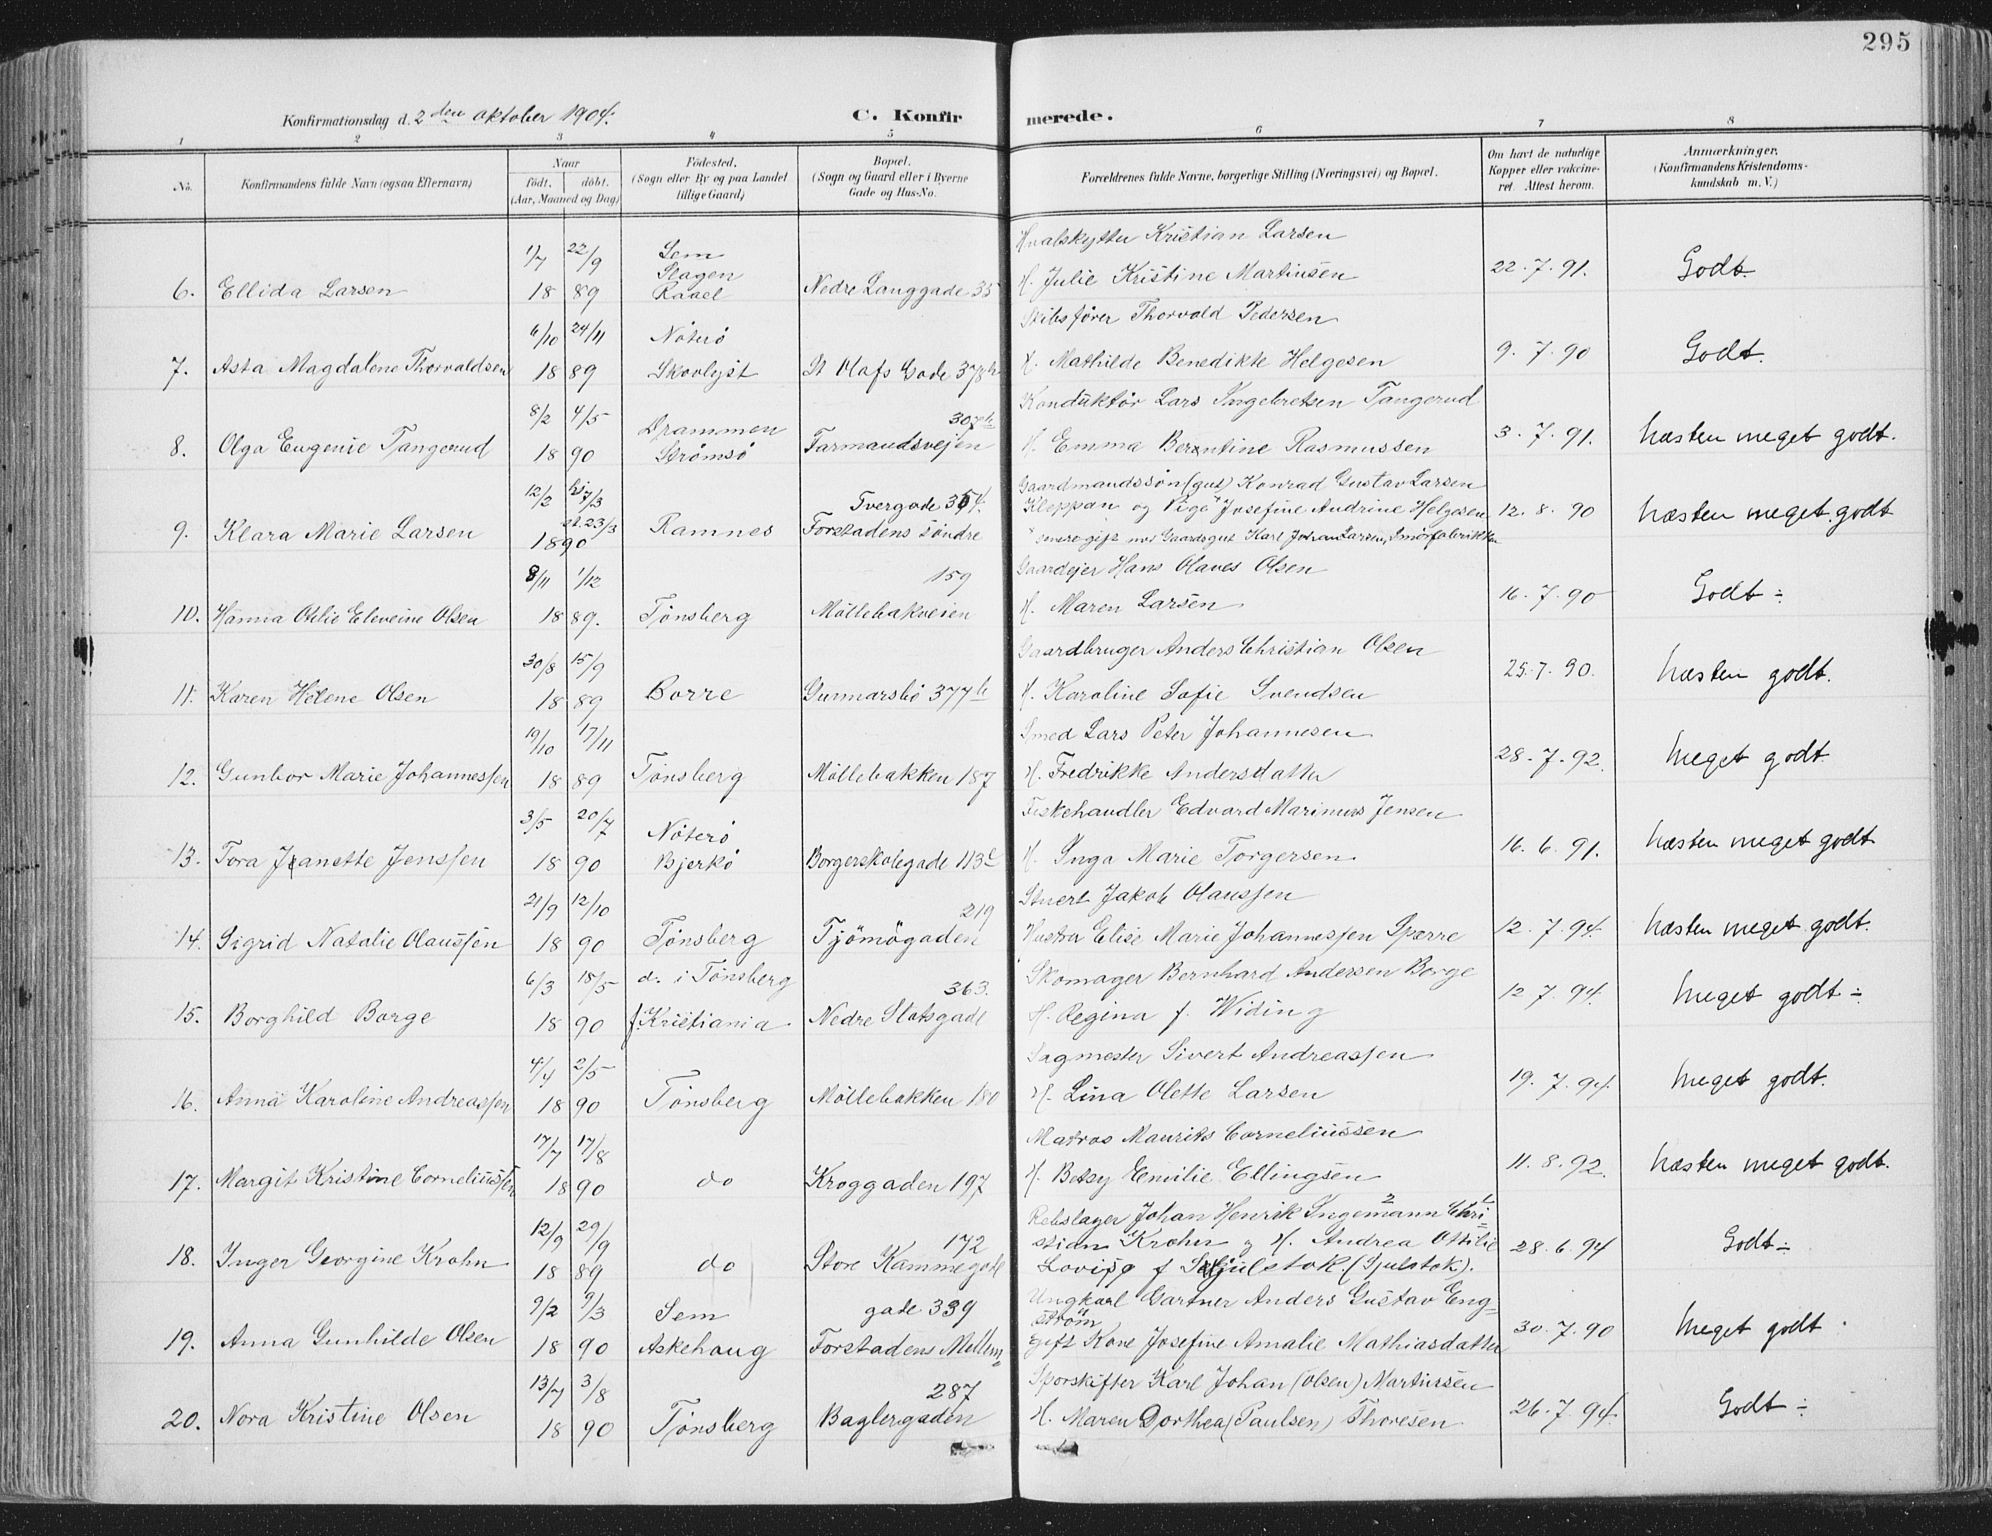 295
Konfirmationsdag d. 2den oktober 1904.
C. Konfirmerede.
1 2 3 4 5 6 7 8
No.
Konfirmandens fulde Navn (ogsaa Efternavn)
Naar
födt, döbt.
(Aar, Maaned og Dag)
Födested.
(Sogn eller By og paa Landet
tillige Gaard)
Bopæl.
(Sogn og Gaard eller i Byerne
Gade og Hus-No.
Forældrenes fulde Navne, borgerlige Stilling (Næringsvei) og Bopæl.
Om havt de naturlige
Kopper eller vakcine-
ret. Attest herom.
Anmærkninger.
(Konfirmandens Kristendoms-
kundskab m. V.)
Hvalskytter Kristian Larsen
1/7 22/9 Sem
Slagen
H. Julie Kristine Martinsen 22.7.91. Godt
6. Ellida Larsen 18 89 Raael Nedre Langgade 35
Skibsfører Thorvald Pedersen
6/10 24/11 Nöterö
H. Mathilde Benedikte Helgesen 9.7.90 Godt.
7. Asta Magdalene Thorvaldsen 18 89 Skovlyst St Olafs Gade 378h
Konduktör Lars Ingebretsen Tangerud
8/2 4/5 Drammen 307h
8. Olga Eugenie Tangerud 18 90 Strömsö Farmandsvejen H. Emma Berntine Rasmussen 3.7.91. Næsten meget godt.
Gaardmandssön (gut) Konrad Gustav Larsen
12/2 hj 7/3 Tvergade 354.
Kleppan og Pige Josefine Andrine Helgesen 12.8.90 Næsten meget godt
9. Klara Marie Larsen 1890 st. 23/3 Ramnes Forstadens söndre
senere gift med Gaardsgut Karl Johan Larsen, Smörfabrikken
Gaardejer Hans Olaves Olsen
8/11 1/12 159
10. Hanna Otilie Eleveine Olsen 18 89. Tönsberg Möllebakveien H. Maren Larsen 16.7.90 Godt ÷
Gaardbruger Anders Christian Olsen
30/8 15/9
11. Karen Helene Olsen 18 89 Borre Gunnarsbö 377h H. Karoline Sofie Svendsen 25.7.90. Næsten godt.
Smed Lars Peter Johannesen
19/10 17/11
12. Gunbor Marie Johannessen 18 89 Tönsberg Möllebakken 187 H. Fredrikke Andersdatter 28.7.92. Meget godt
Fiskehandler Edvard Marinus Jensen
3/5 20/7 Nöterö
13. Tora Jeanette Jenssen 18 90 Bjerkö Borgerskolegade 113c H. Inga Marie Torgersen 16.6.91. Næsten meget godt
Stuert Jakob Olaussen
21/9 12/10 219
14. Sigrid Natalie Olaussen 18 90 Tönsberg Tjömögaden Hustru Elise Marie Johannessen Sperre 12.7.94. Næsten meget godt.
6/3 18/5 d. i Tönsberg 363.
Skomager Bernhard Andersen Borge
15. Borghild Borge 18 90 f. Kristiania Nedre Slotsgade H. Regina f. Widing 12.7.94. Meget godt ÷
Sagmester Sivert Andreassen
4/4 2/5
16. Anna Karoline Andreassen 18 90 Tönsberg Möllebakken 180 H. Lina Olette Larsen 19.7.94. Meget godt.
Matros Maurits Corneliussen
17/7 17/8
17. Margit Kristine Corneliussen 18 90 do Kroggaden 197 H. Betsy Emilie Ellingsen 11.8.92. Næsten meget godt.
Rebslager Johan Henrik Ingemann Chri-
12/9 29/9 172
stian Krohn og H. Andrea Ottilie 28.6.94 Godt ÷
18. Inger Georgine Krohn 18 89 do Store Kammegade
Lovise f Stjulstok. (Sjulstok).
Ungkarl Gartner Anders Gustav Eng-
ström
9/2 9/3 Sem gade 339
19. Anna Gunhilde Olsen 18 90 Askehaug Forstadens Mellem= gift Kone Josefine Amalie Mathiasdatter 30.7.90 Meget godt.
13/7 3/8 287
Sporskifter Karl Johan (Olsen) Martinsen
20. Nora Kristine Olsen 18 90 Tönsberg Baglergaden H. Maren Dorthea (Paulsen) Thoresen 26.7.94. Godt ÷